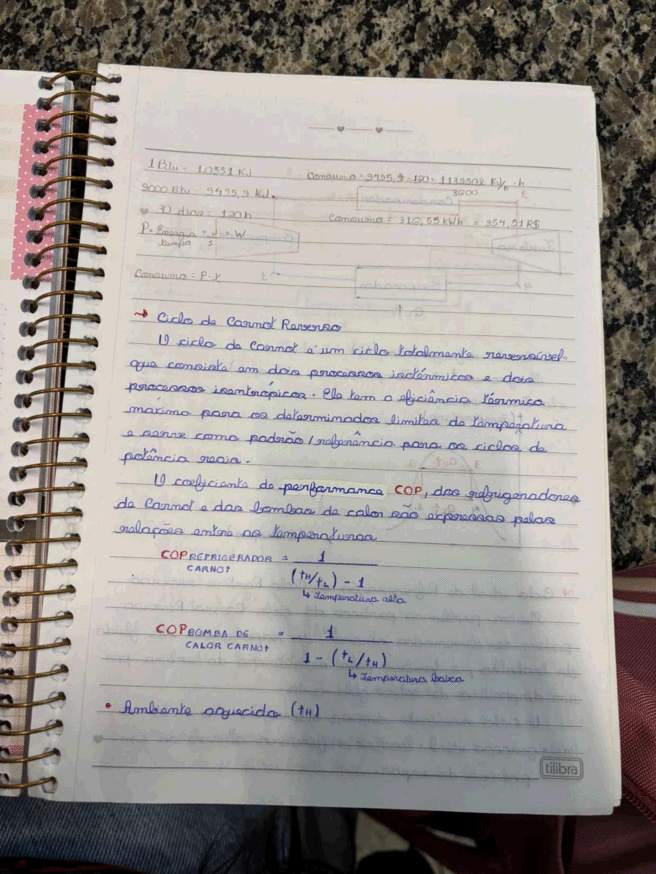 1 Btu = 1,0551 KJ
Consumo = 9495,9 · 120 = 1139508 KJ/h · h
9000 Btu = 9495,9 KJ
3600
30 dias = 120 h
Consumo = 316,55 kWh = 354,51 R$
P = Energia = J = W
tempo s
Consumo = P · t
→ Ciclo de Carnot Reverso
O ciclo de Carnot é um ciclo totalmente reversível
que consiste em dois processos isotérmicos e dois
processos isentrópicos. Ele tem a eficiência térmica
máxima para os determinados limites de temperatura
e serve como padrão/referência para os ciclos de
potência reais.
O coeficiente de performance COP, dos refrigeradores
de Carnot e das bombas de calor são expressas pelas
relações entre as temperaturas
COP REFRIGERADOR = 1
CARNOT
(tH/tL) - 1
↳ Temperatura alta
COP BOMBA DE = 1
CALOR CARNOT
1 - (tL/tH)
↳ Temperatura baixa
• Ambiente aquecido (tH)
tilibra